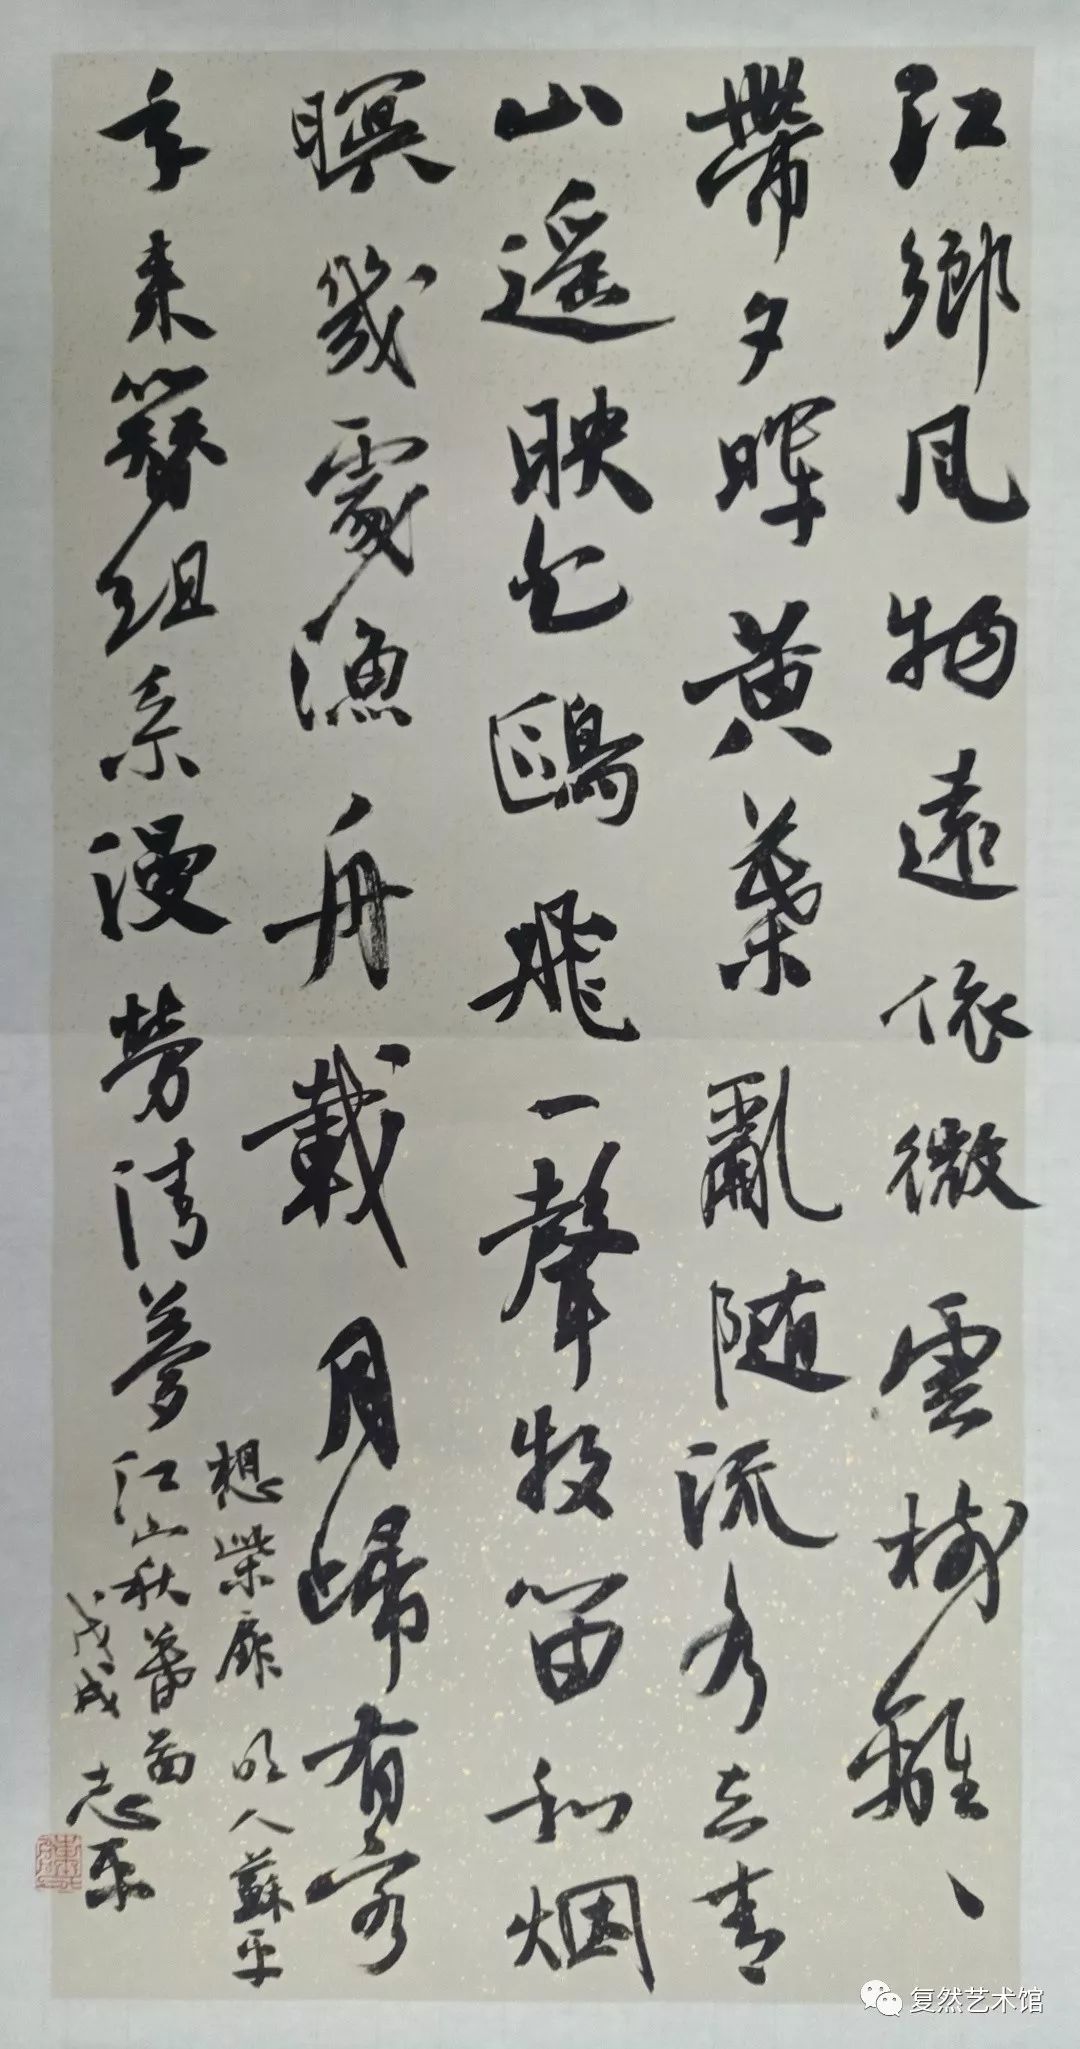 江鄉風物遠依微雲樹離、、
帶夕暉黃葉亂随流水去青
山遥映白鷗飛一聲牧笛和烟
暝幾處漁舟載月歸有客
年来簪組系漫勞清夢
想柴扉 明人蘇平
江山秋暮啚
戊戌 志平
复然艺术馆